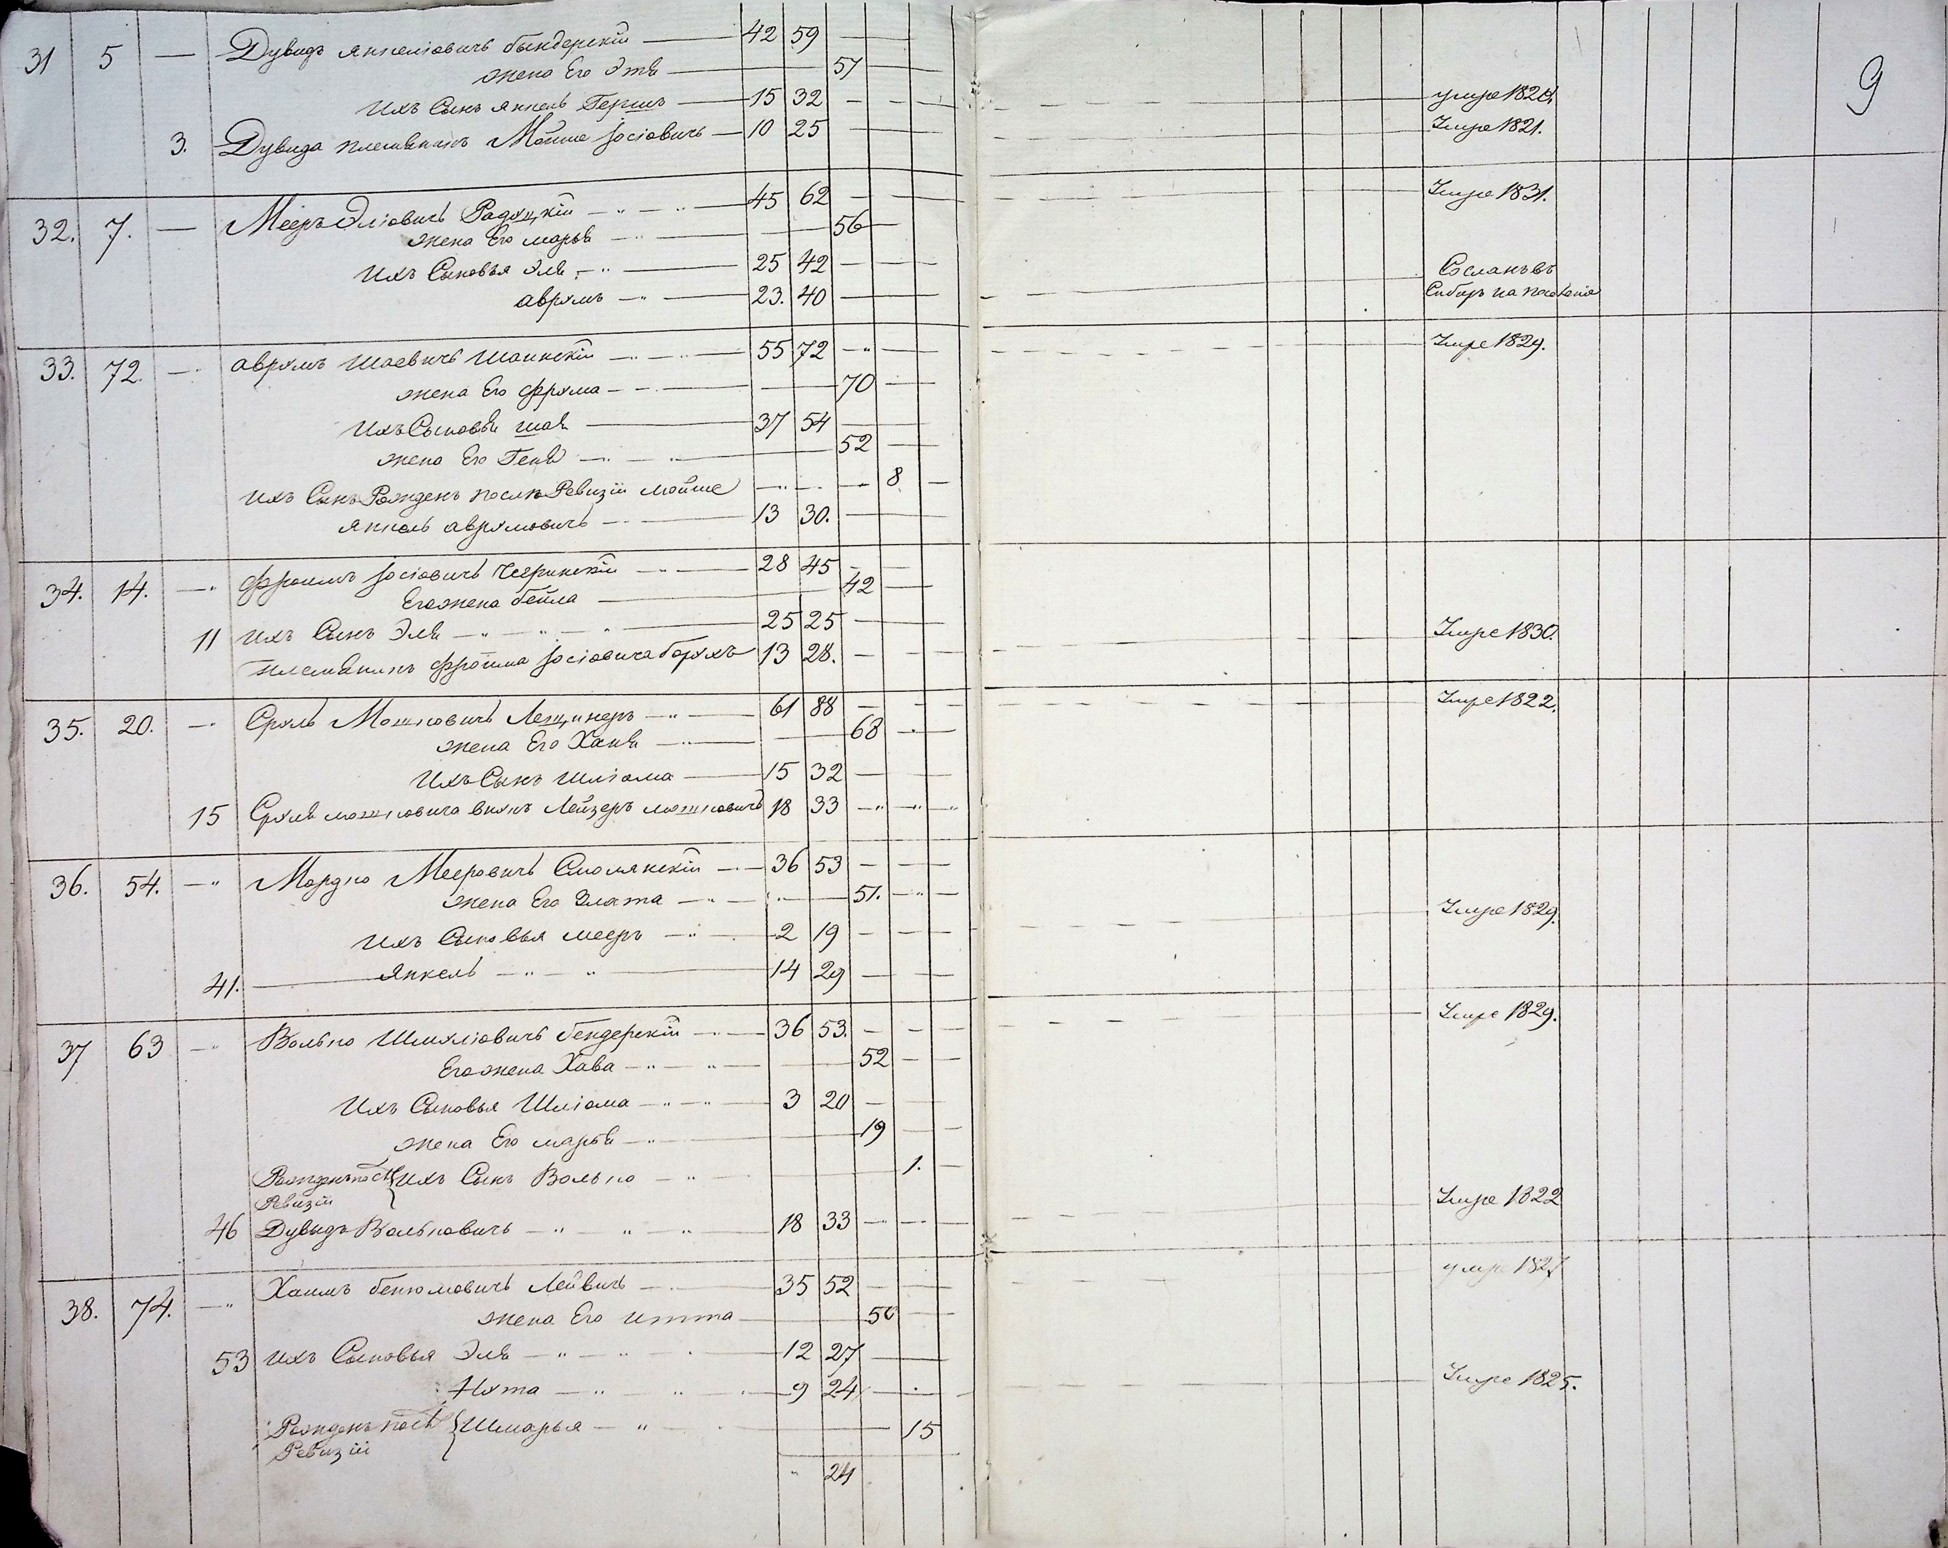 9
31 5 — Дувидъ Янкеліовичъ Бындерскій — 42 59 — —
жена Его Этя — 57 —
Ихъ Сынъ Янкель Гершъ — 15 32 — — — умре 1828.
3. Дувида племянникъ Мойше Іосіовичъ — 10 25 — — Умре 1821.
32. 7. — Мееръ Эліовичъ Радуцкій — 45 62 — — Умре 1831.
жена Его марья — 56 —
Ихъ Сыновья Эля — 25 42 — — Сосланъ въ
аврумъ — 23. 40 — — Сибирь на поселеніе
33. 72. — аврумъ Шаевичъ Шаинскій — 55 72 — — Умре 1829.
жена Его Фрума — 70 —
Ихъ Сыновья шая — 37 54 —
жена Его Геня — 52 —
Ихъ Сынъ Рожденъ послѣ Ревизіи мойше — 8 —
Янкель аврумовичъ — 13 30. —
34. 14. — Фроимъ Іосіовичъ Чегринскій — 28 45 — —
Его жена бейла — 42 —
11 Ихъ Сынъ Эля — 25 25 — — Умре 1830.
племянникъ Фроима Іосіовича борухъ 13 28. — —
35. 20. — Сруль Мошковичъ Лещинеръ — 61 88 — — Умре 1822.
жена Его Хання — 68 —
Ихъ Сынъ Шліома — 15 32 — —
15 Сруля мошковича внукъ Лейзеръ мошковичъ 18 33 — — —
36. 54. — Мордко Мееровичъ Смолянскій — 36 53 — —
жена Его Злата — 51. — —
Ихъ Сыновья мееръ — 2 19 — — — Умре 1829.
41. — Янкель — 14 29 — —
37 63 — Волько Шмуліовичъ Бендерскій — 36 53. — — Умре 1829.
Его жена Хава — 52 — —
Ихъ Сыновья Шліома — 3 20 — —
жена Его марья — 19 —
Рожденъ послѣ Ихъ Сынъ Волько — 1. —
Ревизіи
46 Дувидъ Вольковичъ — 18 33 — — — Умре 1822
38. 74. — Хаимъ бенюмовичъ Лейвичъ — 35 52 — — умре 1827
жена Его итта — 50 —
53 Ихъ Сыновья Эля — 12 27 —
Нута — 9 24 — — Умре 1825.
Рожденъ послѣ Шмарья — 15
Ревизіи
24